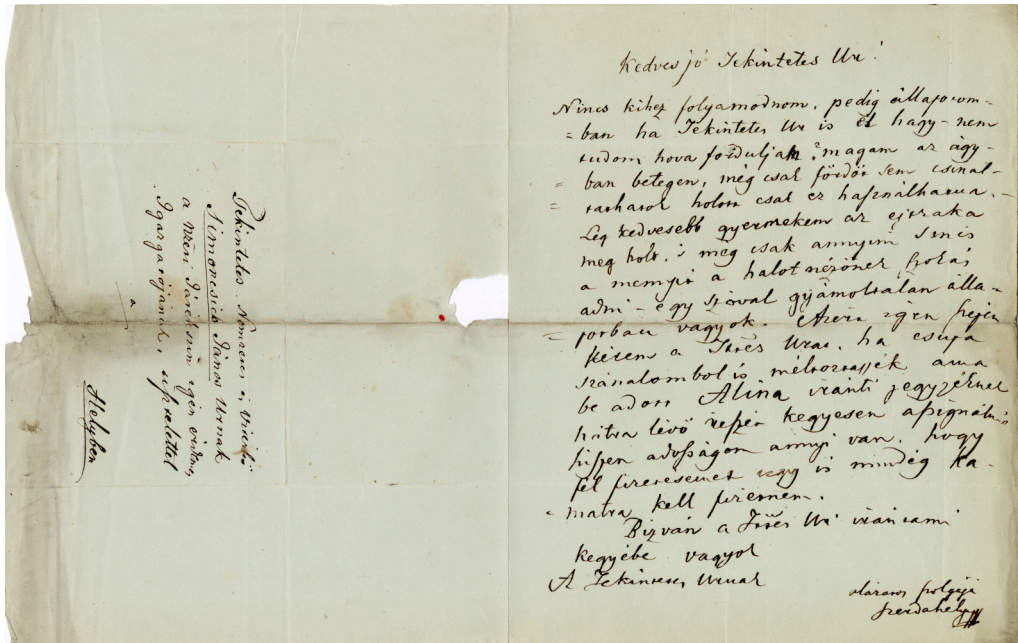 Tekintetes, Nemzetes és Vitézlő
Simoncsics János Urnak
a Nzeti Játékszin igen érdemes
Igazgatójának, tisztelettel
a
Helyben
Kedves jó Tekintetes Ur!
Nincs kihez folyamodnom, pedig állapotom-
= ban ha Tekintetes Ur is el hagy - nem
tudom hova forduljak? magam az ágy-
= ban betegen, még csak fördőt sem csinal-
= tathatok holott csak ez használhatna. -
Leg kedvesebb gyermekem az éjszaka
meg holt, s még csak annyim sincs
a mennyit a halotnézőnek szokás
adni - egy szóval gyámoltalan álla-
= potban vagyok. Azért igen szépen
kérem a Ttes Urat, ha csupa
szánalombol is méltoztassék ama
be adott Alina iránti jegyzéknek
hátra lévő részét kegyesen assignálni
hiszen adosságom annyi van, hogy
fél fizetésemet ugy is mindég ka-
= matra kell fizetnem.
Bizván a Ttes Ur irántami
kegyébe vagyok
A Tekintetes Urnak
alázatos szolgája
Szerdahelyi